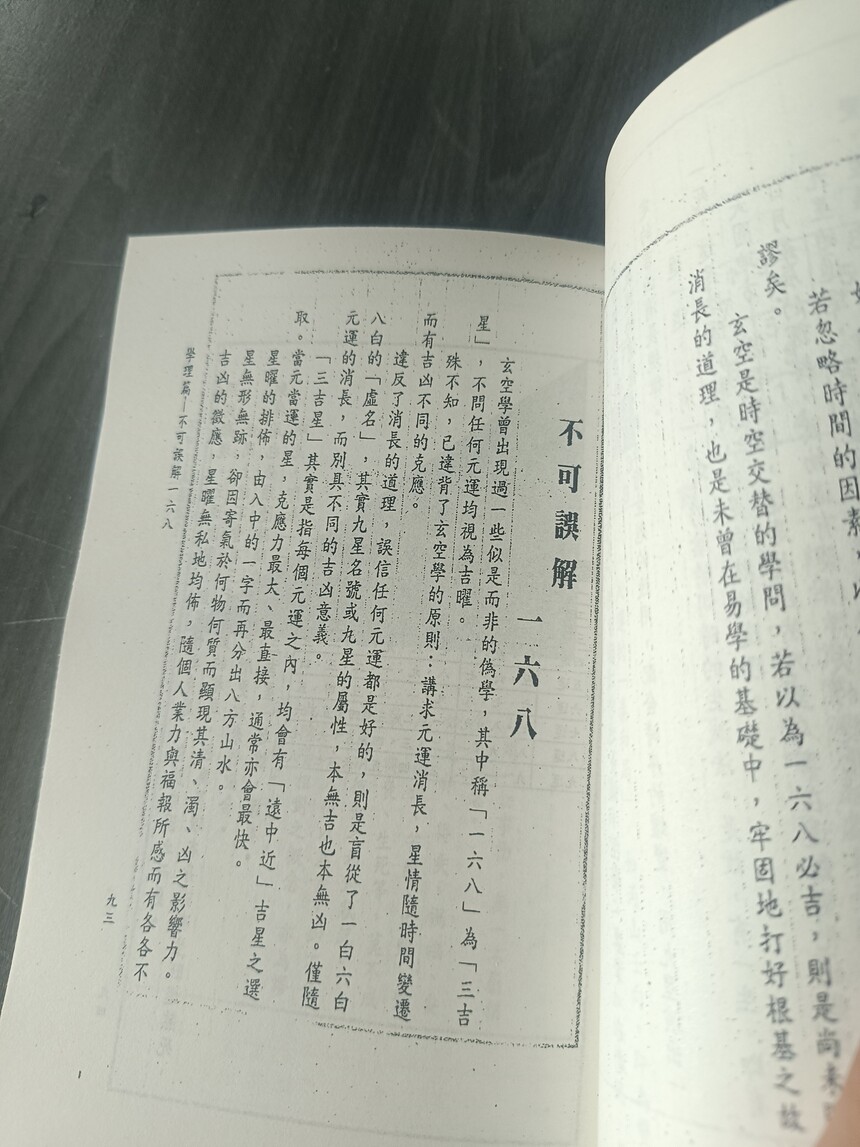 若忽略時間的因素
謬矣。
玄空是時空交替的學問，若以為一六八必吉，則是尚未
消長的道理，也是未曾在易學的基礎中，牢固地打好根基之故
不可誤解一六八
玄空學曾出現過一些似是而非的偽學，其中稱「一六八」為「三吉
星」，不問任何元運均視為吉曜。
殊不知，已違背了玄空學的原則：講求元運消長，星情隨時間變遷
而有吉凶不同的克應。
違反了消長的道理，誤信任何元運都是好的，則是盲從了一白六白
八白的「虛名」，其實九星名號或九星的屬性，本無吉也本無凶。僅隨
元運的消長，而別具不同的吉凶意義。
「三吉星」其實是指每個元運之內，均會有「遠中近」吉星之選
取。當元當運的星，克應力最大、最直接，通常亦會最快。
星曜的排佈，由入中的一字而再分出八方山水。
星無形無跡，卻因寄氣於何物何質而顯現其清、濁、凶之影響力。
吉凶的徵應，星曜無私地均佈，隨個人業力與福報所感而有各各不
學理篇—不可誤解一六八
九三